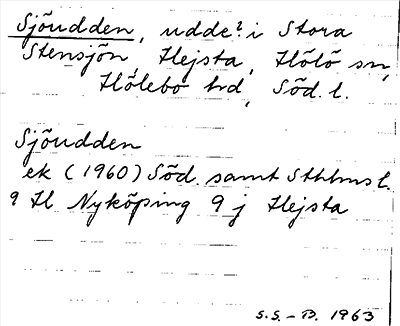 Sjöudden, udde? i Stora
Stensjön, Hejsta, Hölö sn,
Hölebo hd, Söd. l.
Sjöudden
ek (1960) Söd. samt Sthlms l.
9 H Nyköping 9 j Hejsta
S.S. - B. 1963